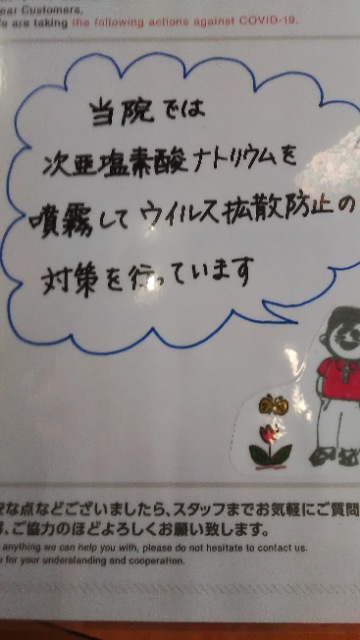 ear Customers,
e are taking the following actions against COVID-19.
当院では
次亜塩素酸ナトリウムを
噴霧してウイルス拡散防止の
対策を行っています
な点などございましたら、スタッフまでお気軽にご質問
、ご協力のほどよろしくお願い致します。
anything we can help you with, please do not hesitate to contact us.
for your understanding and cooperation.